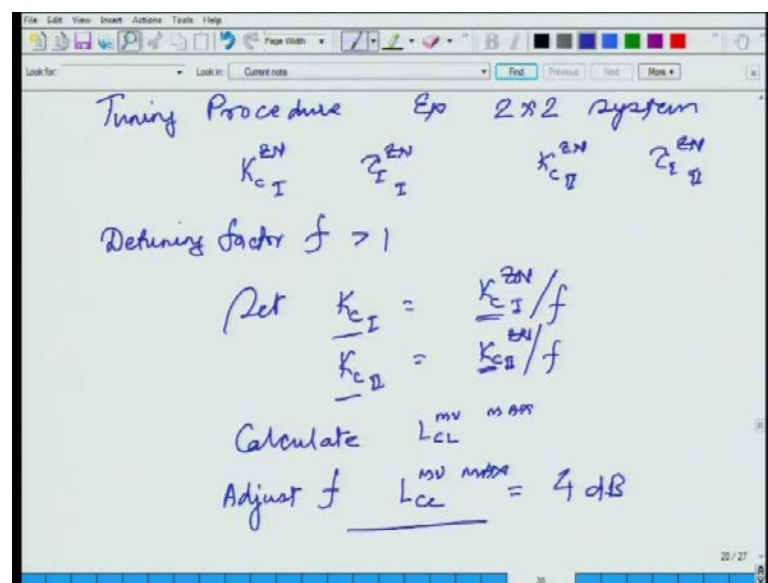 File Edit View Insert Actions Tools Help
Page Width B I
Look for: Look in: Current note Find Previous Next More
Tuning Procedure Ex 2x2 system
K_c^ZN_I τ_I^ZN_I K_c^ZN_II τ_I^ZN_II
Detuning factor f > 1
Set K_c_I = K_c^ZN_I / f
K_c_II = K_c^ZN_II / f
Calculate L_CL^MV MAX
Adjust f L_CL^MV MAX = 4 dB
20 / 27
20